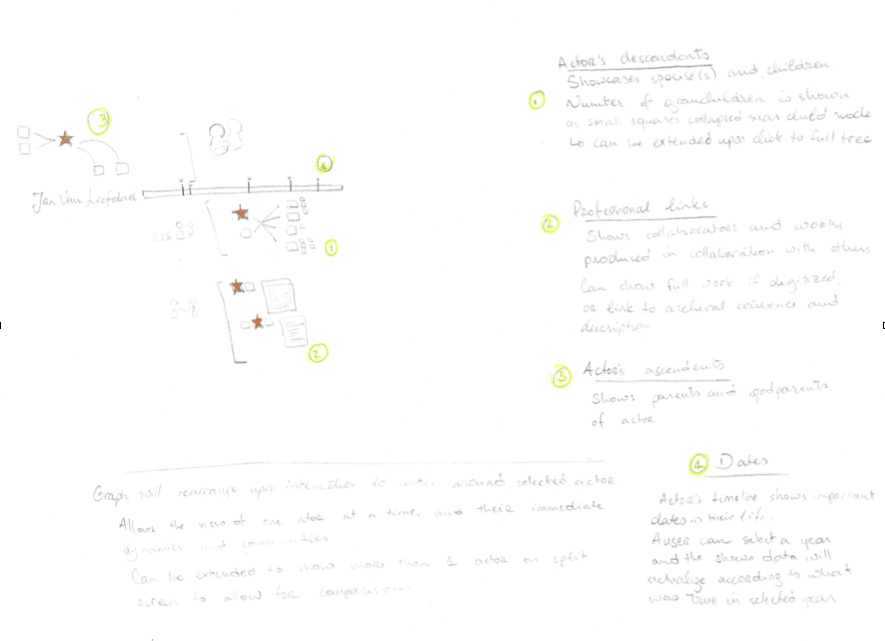 3
4
Jan Van Liefdael
1
2
Actor's descendents
1 Showcases spouse(s) and children.
Number of granchildren is shown
as small squares collapsed near child node
to can be extended upon click to full tree
2 Professional links
Shows collaborators and works
produced in collaboration with others
Can show full work if digitized,
or link to archival evidence and
description
3 Actor's ascendents
Shows parents and godparents
of actor
4 Dates
Actor's timeline shows important
dates in their life.
A user can select a year
and the shown data will
actualize according to what
was true in selected year
Graph will rearrange upon interaction to center around selected actor
Allows the view of one actor at a time, and their immediate
dynamics and communities
Can be extended to show more than 1 actor on split
screen to allow for comparison.